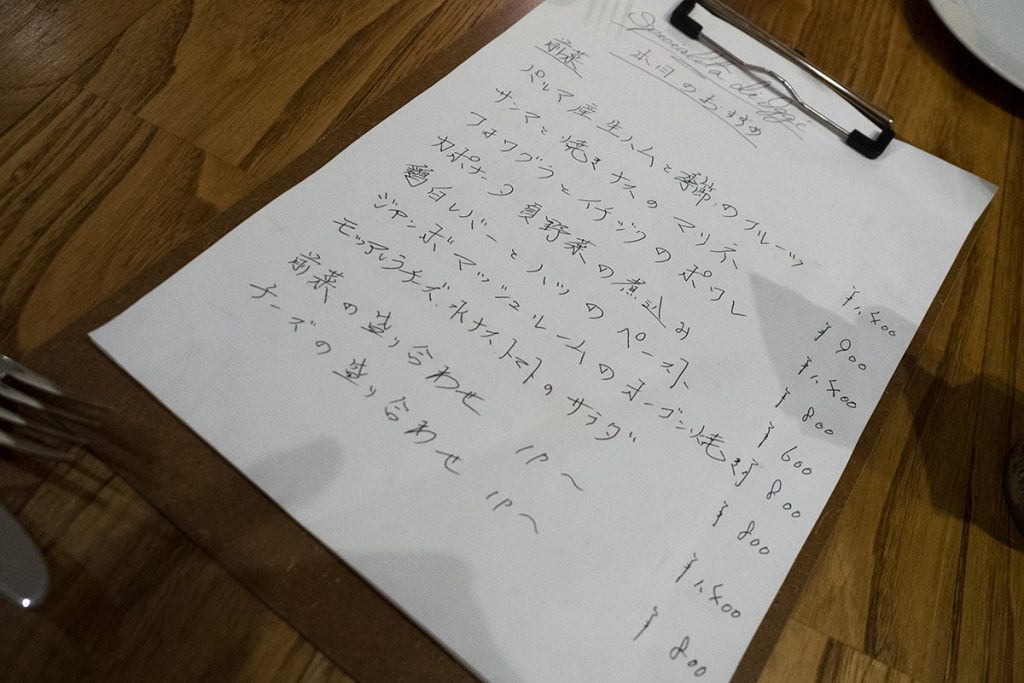 Specialità di Oggi
本日のおすすめ
前菜
パルマ産生ハムと季節のフルーツ ¥1,400
サンマと焼きナスのマリネ ¥900
フォワグラとイチジクのポワレ ¥1,400
カポナータ 夏野菜の煮込み ¥800
鶏白レバーとハツのペースト ¥600
ジャンボマッシュルームのオーブン焼き ¥800
モッツアレラチーズ、水ナス、トマトのサラダ ¥800
前菜の盛り合わせ 1P〜 ¥1,400
チーズの盛り合わせ 1P〜 ¥800